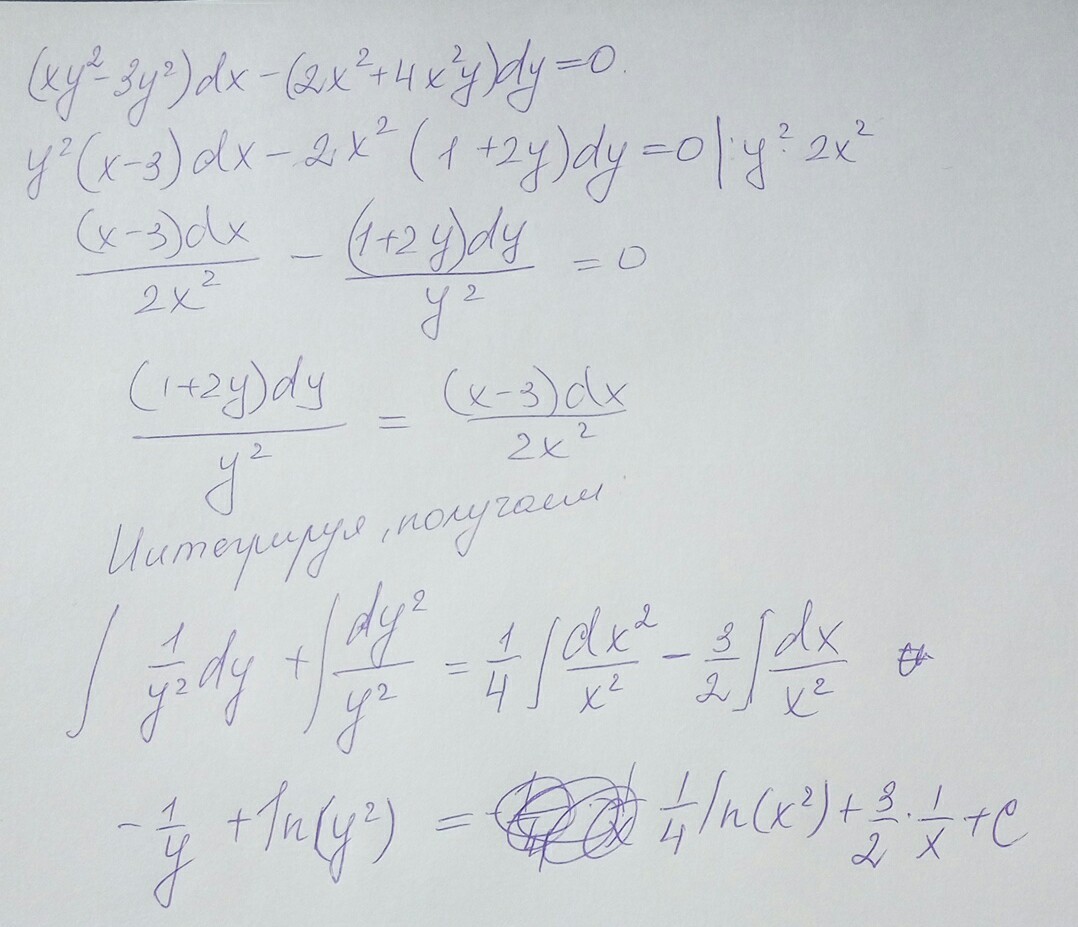 (xy²-3y²)dx-(2x²+4x²y)dy=0.
y²(x-3)dx-2x²(1+2y)dy=0|:y²·2x²
(x-3)dx/2x² - (1+2y)dy/y² = 0
(1+2y)dy/y² = (x-3)dx/2x²
Интегрируя, получаем
∫ 1/y² dy + ∫ dy²/y² = 1/4 ∫ dx²/x² - 3/2 ∫ dx/x²
-1/y + ln(y²) = 1/4 ln(x²) + 3/2 · 1/x + C